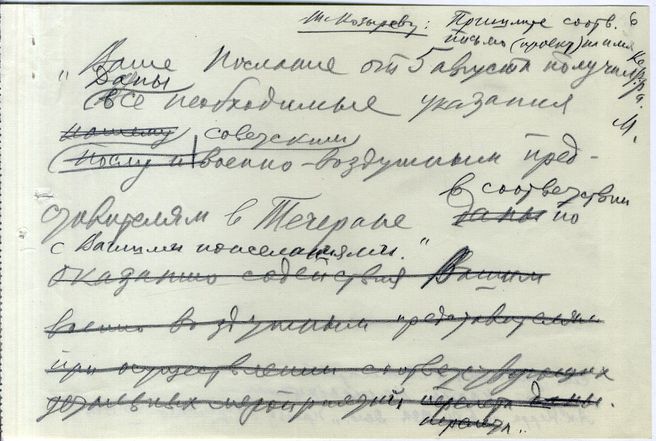 т. Козыреву: Пришлите соотв. 6
письмо (проект) на имя
Керра. М.
„Ваше послание от 5 августа получил
Даны
все необходимые указания
нашему советским
послу и военно-воздушным пред-
ставителям в Тегеране даны по
в соответствии
с Вашими пожеланиями."
оказанию содействия Вашим
военно воздушным представителям
при осуществлении соответствующих
мероприятий перелета даны.
перелета.